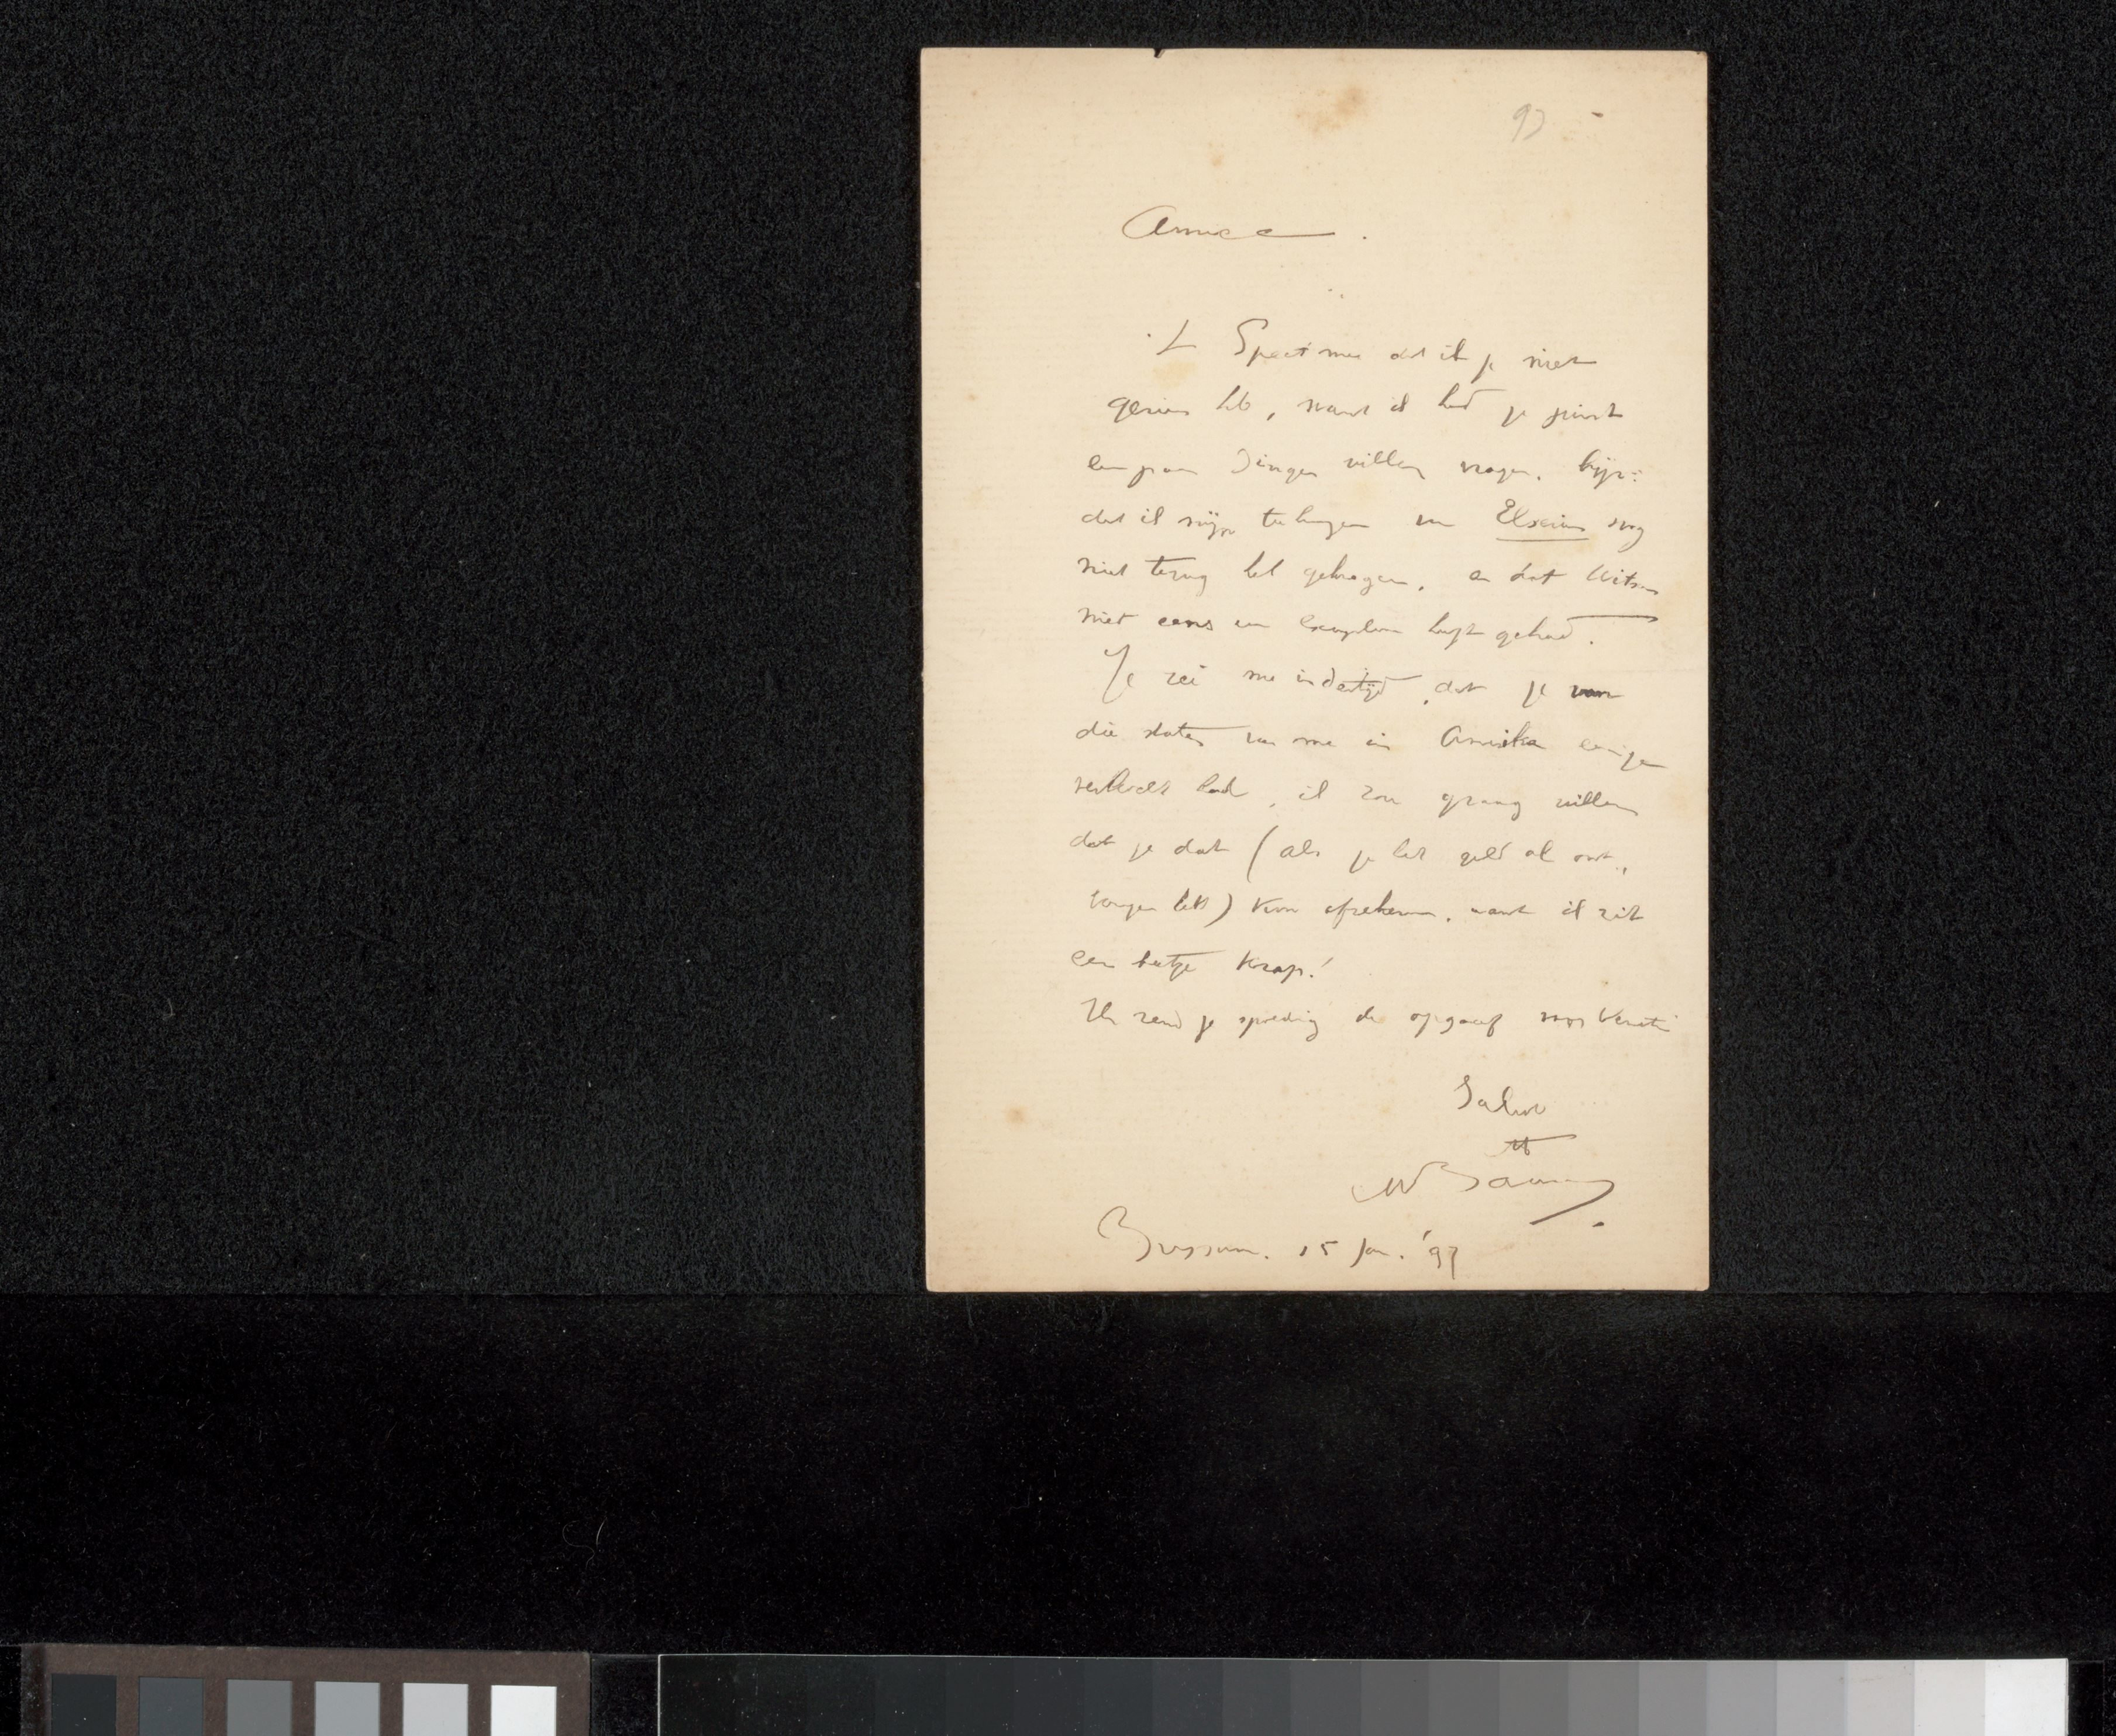 93
Amice.
't Speet me dat ik je niet
gezien heb, want ik had je juist
een paar dingen willen vragen. bijv:
dat ik mijn teekeningen van Elsevier nog
niet terug heb gekregen. en dat Witsen
niet eens een exemplaar heeft gehad.
Je zei me indertijd, dat je van
die platen van me in Amerika eenige
verkocht had, ik zou graag willen
dat je dat (als je het geld al ont„
vangen hebt) kon afrekenen. want ik zit
een beetje krap!
Ik zend je spoedig de opgaaf voor Venetië
Salut
tt
MWBauer.
Bussum. 15 Jan. '97